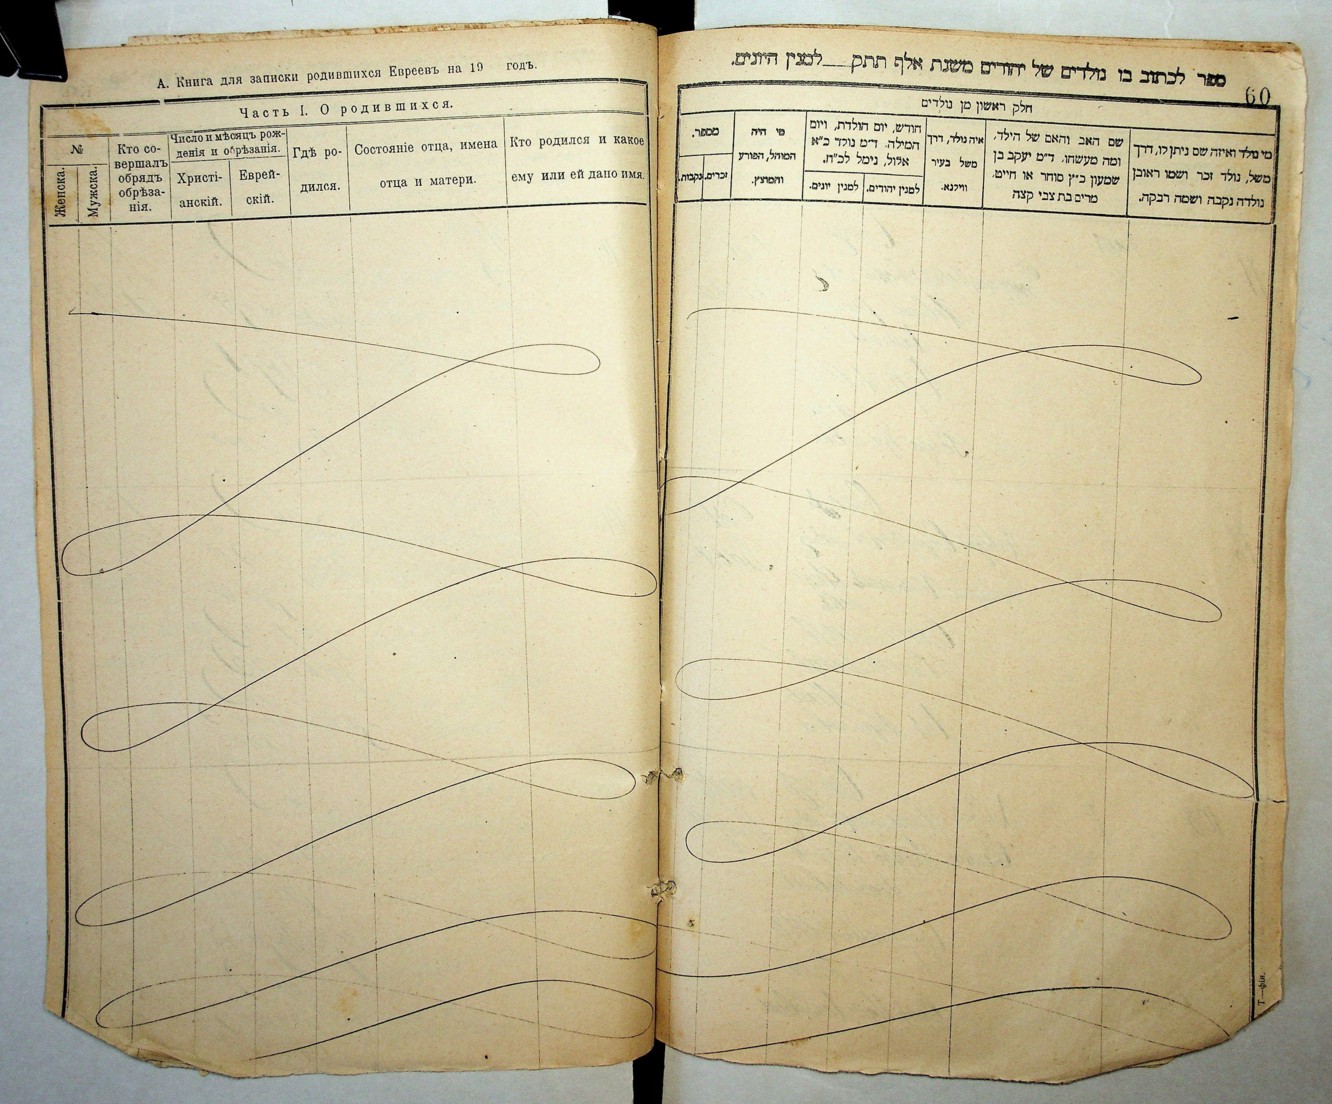 А. Книга для записки родившихся Евреевъ на 19 годъ.
Часть I. О родившихся.
№
Женска.
Мужска.
Кто со-
вершалъ
обрядъ
обрѣза-
нія.
Число и мѣсяцъ рож-
денія и обрѣзанія.
Христі-
анскій.
Еврей-
скій.
Гдѣ ро-
дился.
Состояніе отца, имена
отца и матери.
Кто родился и какое
ему или ей дано имя.
ספר לכתוב בו נולדים של יהודים משנת אלף תתק__למנין היונים.
60
חלק ראשון מן נולדים
מי נולד ואיזה שם ניתן לו, דרך
משל, נולד זכר ושמו ראובן
נולדה נקבה ושמה רבקה.
שם האב והאם של הילד,
ומה מעשהו, ד״מ יעקב בן
שמעון כ״ץ סוחר או חייט.
מרים בת צבי קצה
איה נולד, דרך
משל בעיר
ווילנא.
חודש, יום הולדת, ויום
המילה. ד״מ נולד כ״א
אלול, נימל לכ״ח.
למנין יהודים.
למנין יונים.
מי היה
המוהל, הפורע
והמוצץ.
מספר.
זכרים.
נקבות.